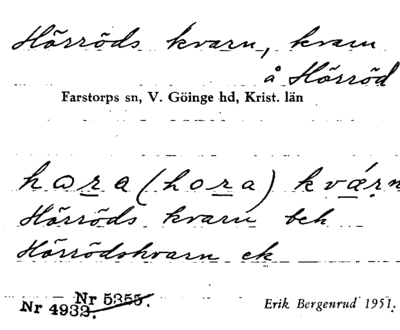 Hörröds kvarn, kvarn
å Hörröd
Farstorps sn, V. Göinge hd, Krist. län
hara (hora) kvárn
Hörröds kvarn beh
Hörrödskvarn ek
Nr 5355.
Nr 4932.
Erik Bergenrud 1951.